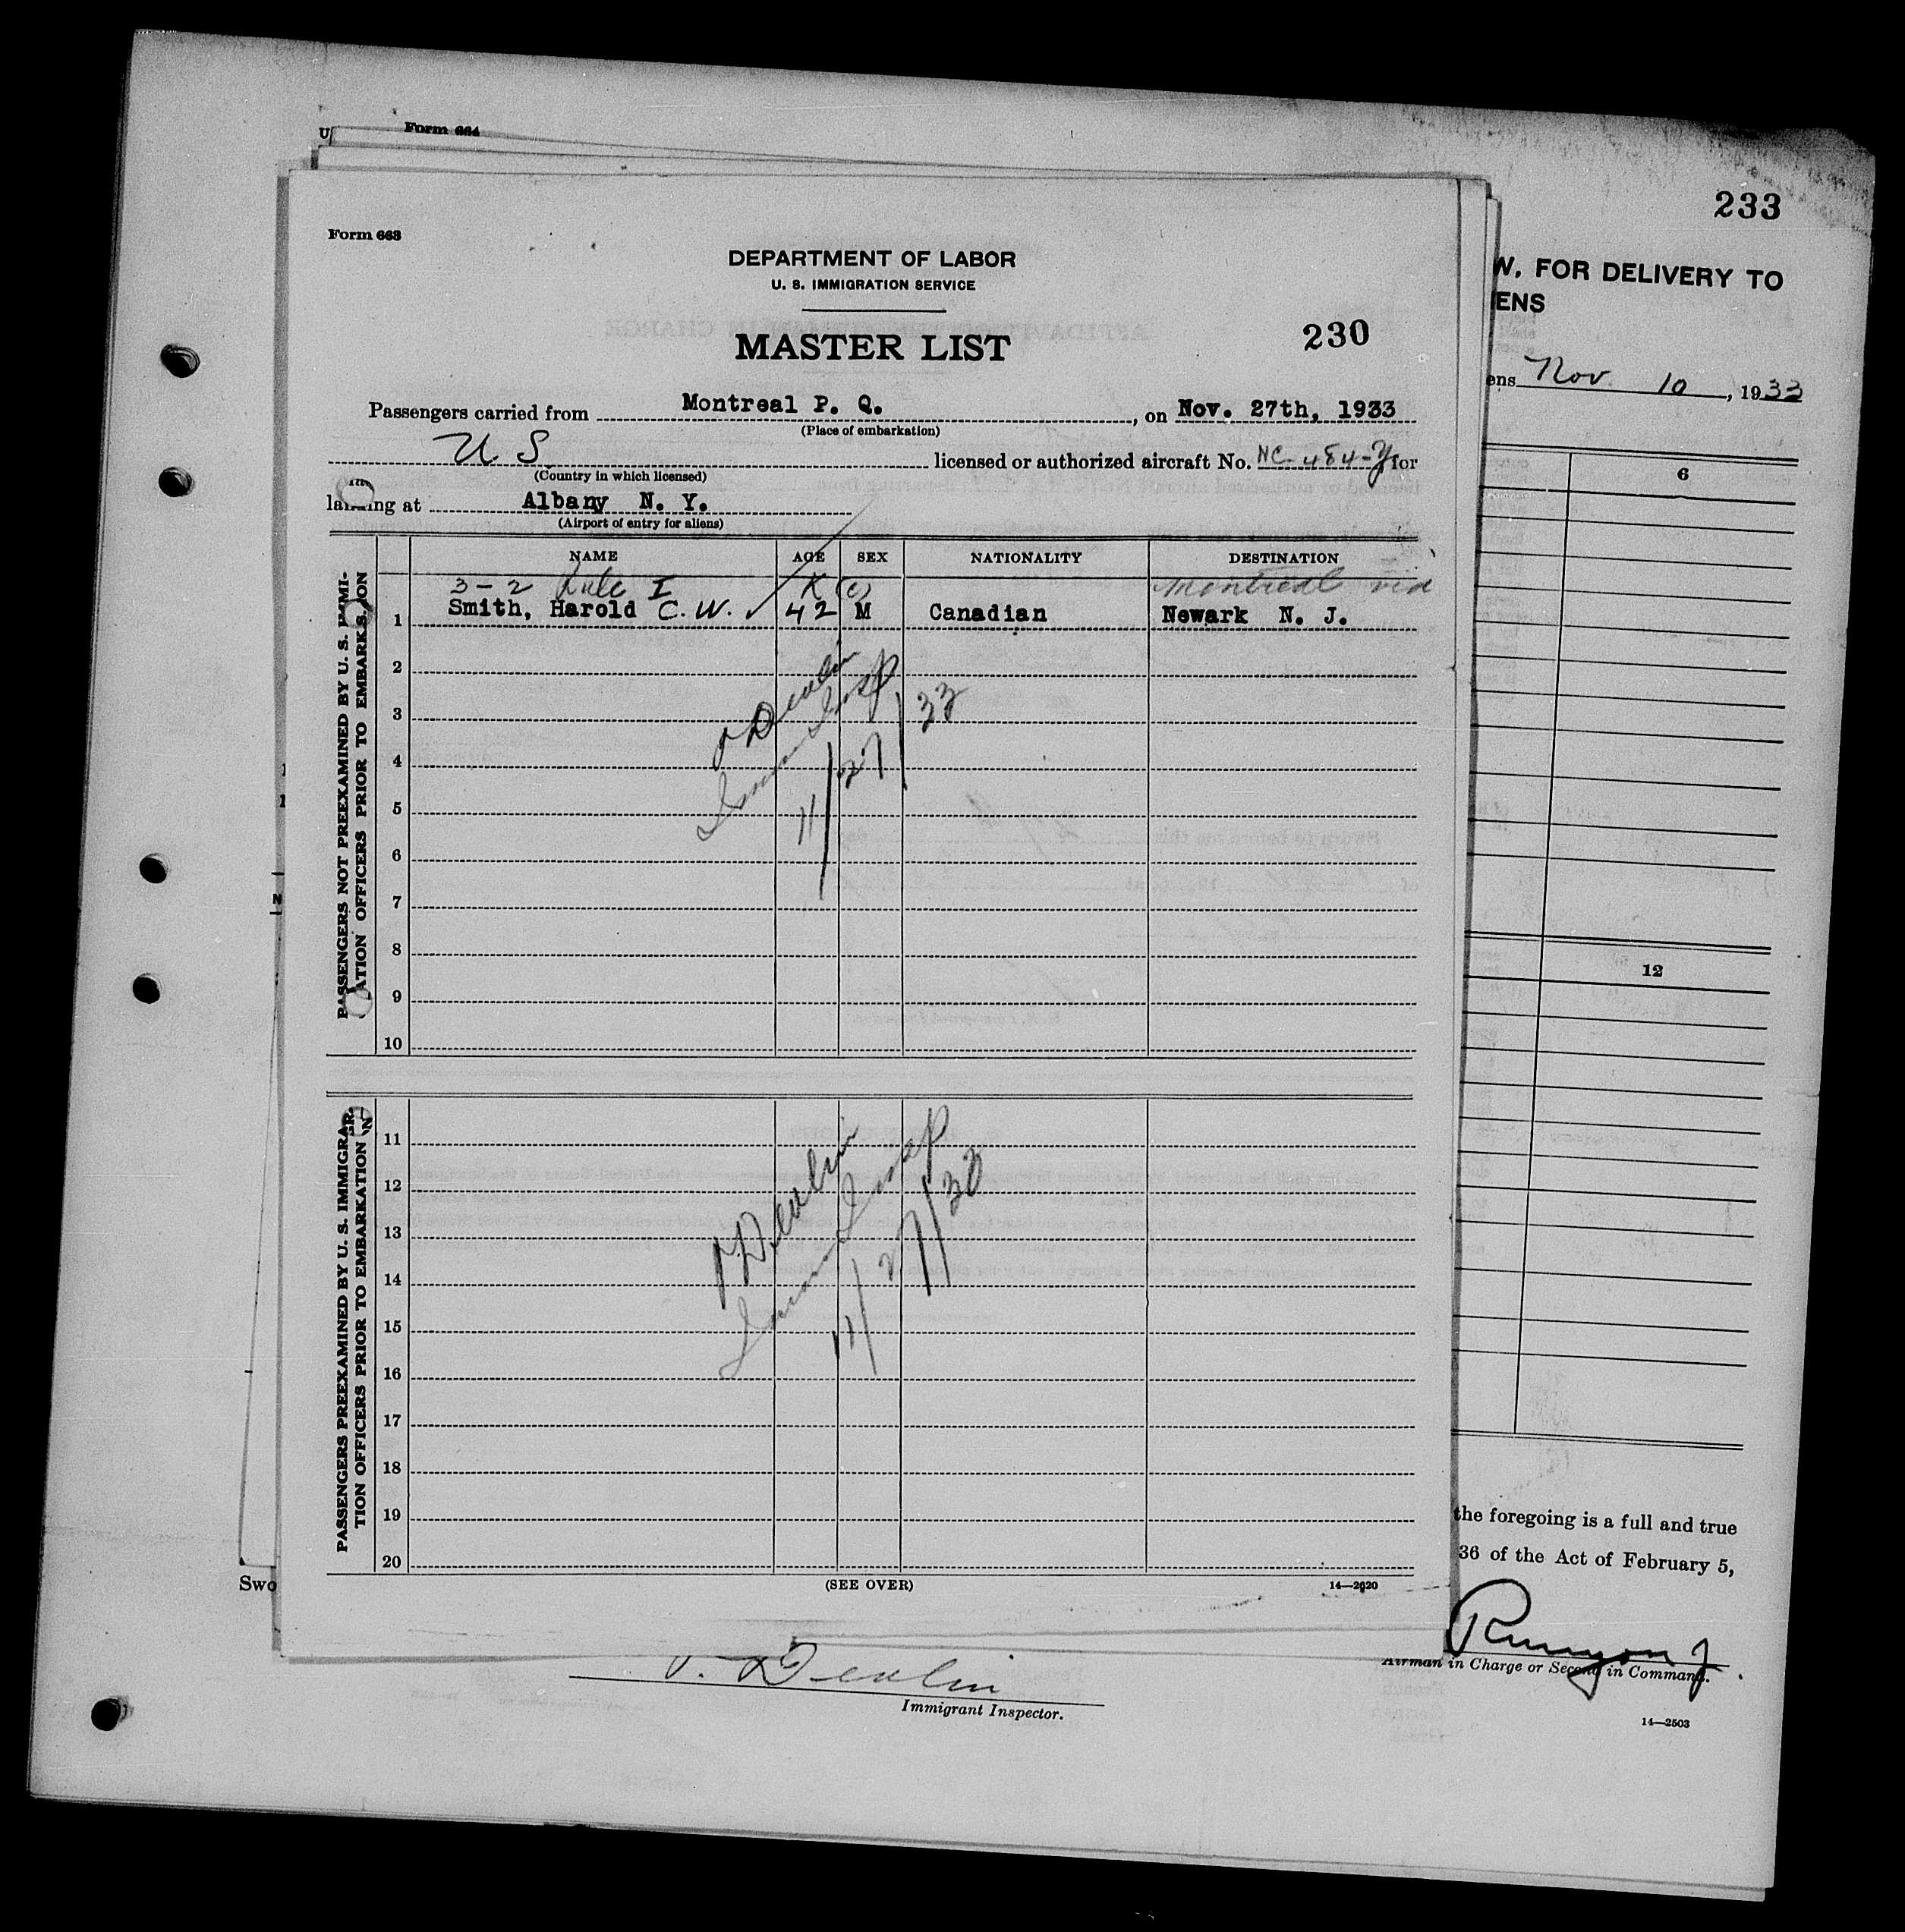 Form 664
U
233
W, FOR DELIVERY TO
ENS
ens Nov 10, 1933
6
12
Form 663
DEPARTMENT OF LABOR
U. S. IMMIGRATION SERVICE
MASTER LIST
230
Passengers carried from Montreal P. Q., on Nov. 27th, 1933
(Place of embarkation)
U S licensed or authorized aircraft No. NC-484-Y for
(Country in which licensed)
landing at Albany N. Y.
(Airport of entry for aliens)
NAME AGE SEX NATIONALITY DESTINATION
3-2 Rule I K (c) Montreal via
1 Smith, Harold C. W. 42 M Canadian Newark N. J.
2
3
4
5
6
7
8
9
10
Devlin
Imm Insp
11/27/33
PASSENGERS NOT PREEXAMINED BY U. S. IMMI-
ATION OFFICERS PRIOR TO EMBARKATION
11
12
13
14
15
16
17
18
19
20
Devlin
Imm Insp
11/27/33
PASSENGERS PREEXAMINED BY U. S. IMMIGRA-
TION OFFICERS PRIOR TO EMBARKATION
(SEE OVER)
14—2620
the foregoing is a full and true
36 of the Act of February 5,
Swo
Devlin
Immigrant Inspector.
Runyon J.
Airman in Charge or Second in Command.
14—2503